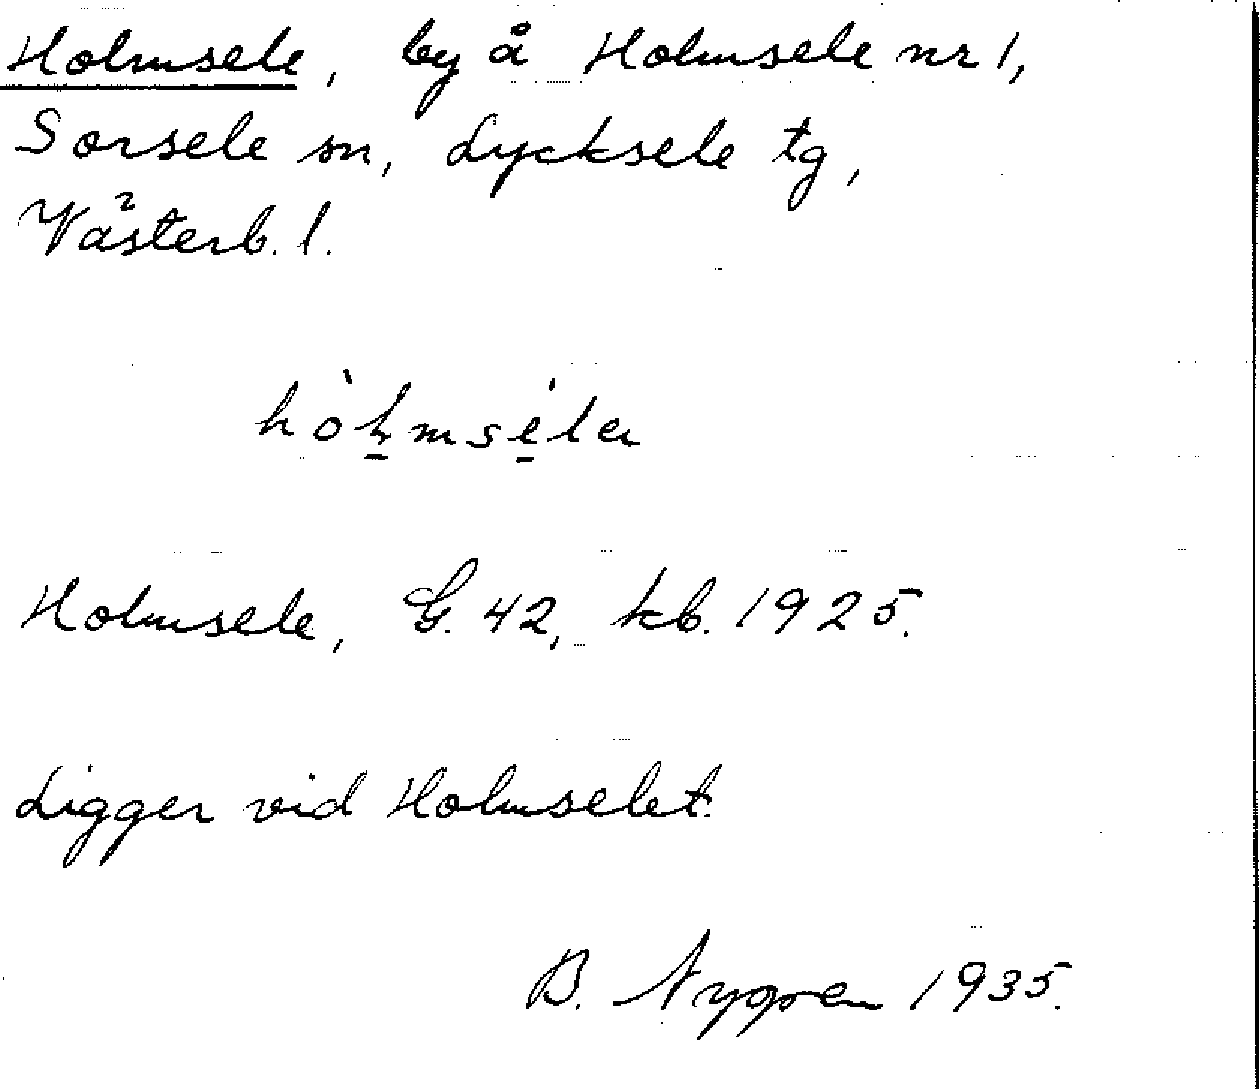 Holmsele, by å Holmsele nr 1,
Sorsele sn, Lycksele tg,
Västerb. l.
Holmsele, G. 42, kb. 1925.
Ligger vid Holmselet.
B. Nygren 1935.